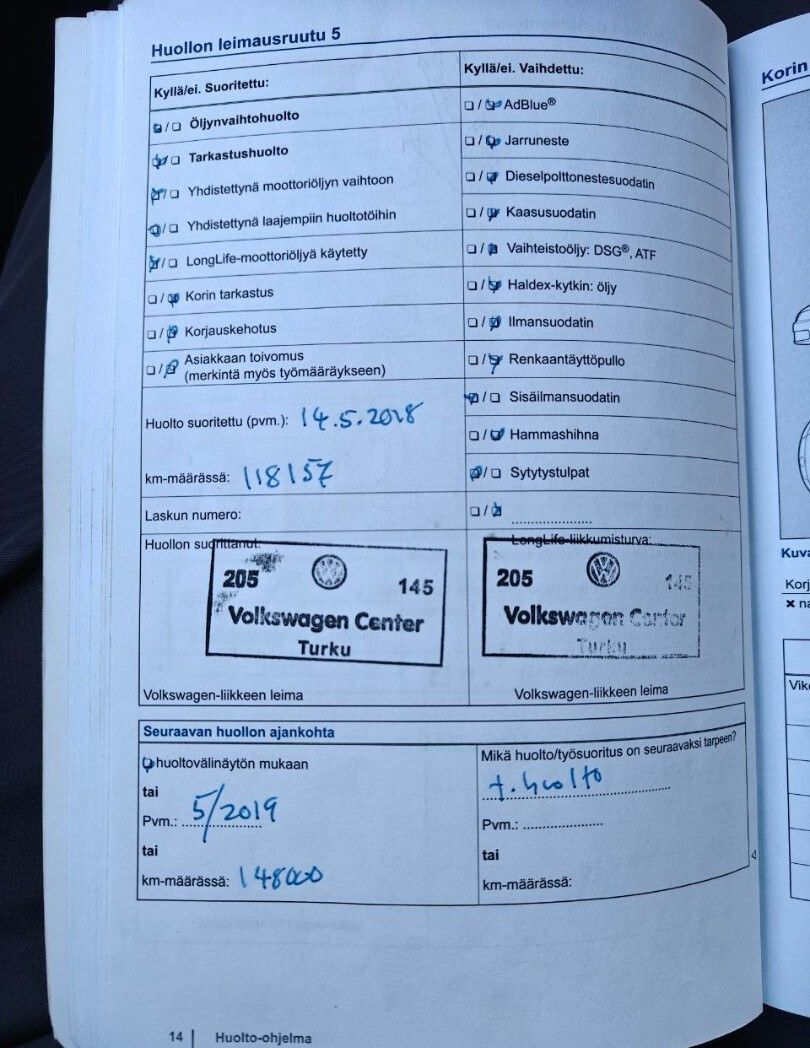 Huollon leimausruutu 5
Kyllä/ei. Suoritettu:
❏ / ❏ Öljynvaihtohuolto
❏ / ❏ Tarkastushuolto
❏ / ❏ Yhdistettynä moottoriöljyn vaihtoon
❏ / ❏ Yhdistettynä laajempiin huoltotöihin
❏ / ❏ LongLife-moottoriöljyä käytetty
❏ / ❏ Korin tarkastus
❏ / ❏ Korjauskehotus
❏ / ❏ Asiakkaan toivomus
(merkintä myös työmääräykseen)
Huolto suoritettu (pvm.): 14.5.2018
km-määrässä: 118157
Laskun numero:
Huollon suorittanut:
205 145
Volkswagen Center
Turku
Volkswagen-liikkeen leima
Kyllä/ei. Vaihdettu:
❏ / ❏ AdBlue®
❏ / ❏ Jarruneste
❏ / ❏ Dieselpolttonestesuodatin
❏ / ❏ Kaasusuodatin
❏ / ❏ Vaihteistoöljy: DSG®, ATF
❏ / ❏ Haldex-kytkin: öljy
❏ / ❏ Ilmansuodatin
❏ / ❏ Renkaantäyttöpullo
❏ / ❏ Sisäilmansuodatin
❏ / ❏ Hammashihna
❏ / ❏ Sytytystulpat
❏ / ❏ ....................
LongLife-liikkumisturva:
205 145
Volkswagen Center
Turku
Volkswagen-liikkeen leima
Seuraavan huollon ajankohta
❏ huoltovälinäytön mukaan
tai
Pvm.: 5/2019
tai
km-määrässä: 148000
Mikä huolto/työsuoritus on seuraavaksi tarpeen?
t.huolto
Pvm.: ....................
tai
km-määrässä:
14 | Huolto-ohjelma
Korin
Kuva
Korj
✖ na
Vik